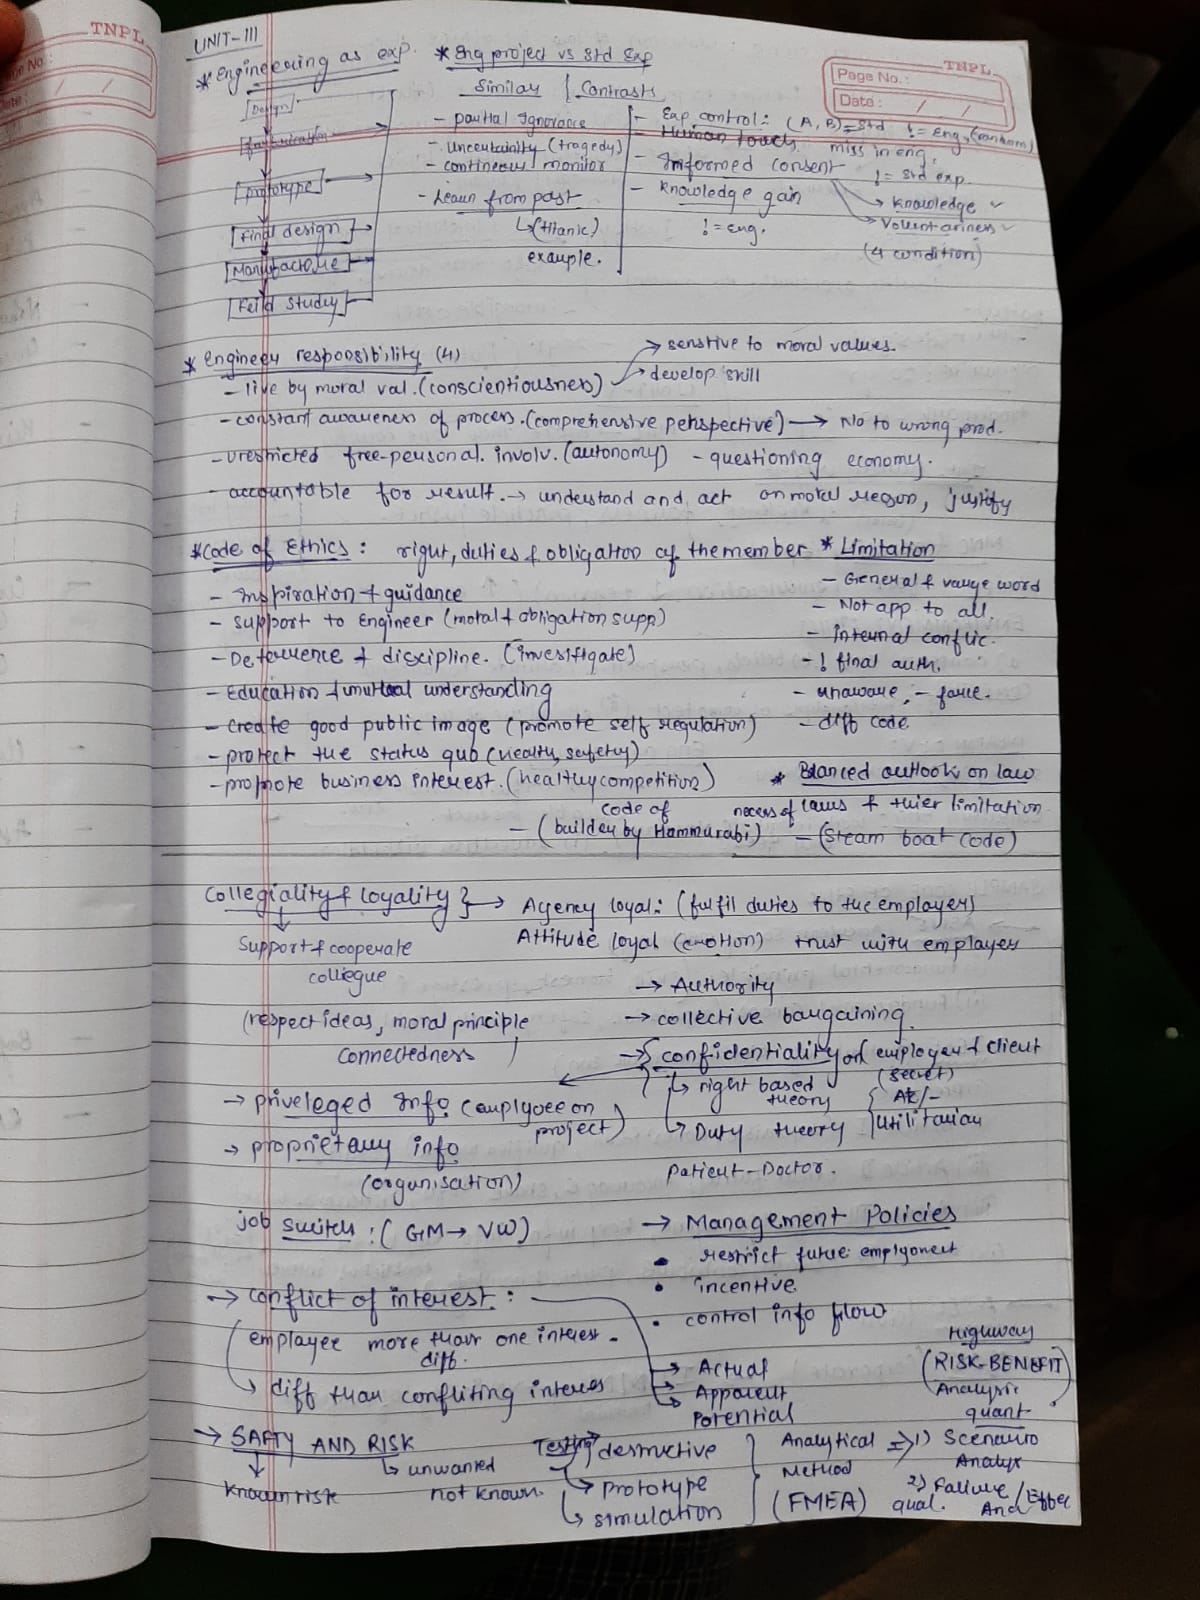 TNPL
TNPL
Page No.:
Date: / /
UNIT-III
* Engineering as exp.
Design
prototype
Final design
Manufacture
Feild Study
* Eng project vs Std Exp
Similar
- partial Ignorance
- uncertainity (tragedy)
- continous monitor
- Learn from past
(titanic)
example.
Contrasts
- Exp control: (A, B) = Std != Eng, (random)
- Human touch miss in eng.
- Informed consent != Std exp.
→ Knowledge ✓
→ Voluntariness ✓
(4 condition)
- Knowledge gain
! = eng.
* Engineer responsibility (4)
- live by moral val. (conscientiousness)
→ senstive to moral values.
→ develop skill
- constant awareness of process. (comprehensive perspective) → No to wrong prod.
- free-personal. involv. (autonomy) - questioning economy.
- accountable for result. → understand and act on moral reason, justify
* Code of Ethics : right, duties & obligation of the member
- Inspiration & guidance
- support to Engineer (moral & obligation supp)
- Deterrence & discipline. (investigate)
- Education & mutual understanding
- create good public image (promote self regulation)
- protect the status quo (health, safety)
- promote business interest. (healthy competition)
* Limitation
- General & vauge word
- Not app to all.
- internal conflic.
- ! final auth.
- unaware, - force.
- diff code
* Blanced outlook on law
necess of laws & thier limitation
- (builder by code of Hammurabi) - (Steam boat code)
Collegiality & Loyality } → Agency loyal: (fulfil duties to the employer)
Attitude loyal (emotion) trust with employer
Support & cooperate
colliegue
(respect ideas, moral principle
connectedness )
→ Authority
→ collective bargaining.
→ confidentiality of employer & client
(secret)
→ right based theory
→ Duty theory
Utilitarian
Patient - Doctor.
→ priveleged info (employee on project)
→ proprietary info
(organisation)
job switch : ( GM → VW )
→ Management Policies
• restrict future employment
• incentive
• control info flow
→ conflict of interest :
employee more than one interest.
diff.
→ diff than confliting interes
→ Actual
→ Apparent
→ Potential
Highway
(RISK-BENEFIT)
Analysis
quant
→ SAFTY AND RISK
Known risk
→ unwanted
not known.
Testing → destructive
→ prototype
→ simulation
Analytical
Method
(FMEA)
=> 1) Scenario
Analys
2) Failure / Effec
qual.